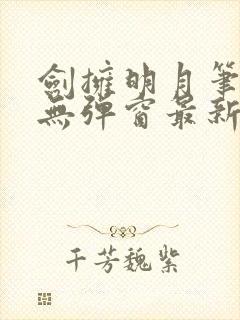 劍擁明月筆
無彈窗最新
千芳魏紫